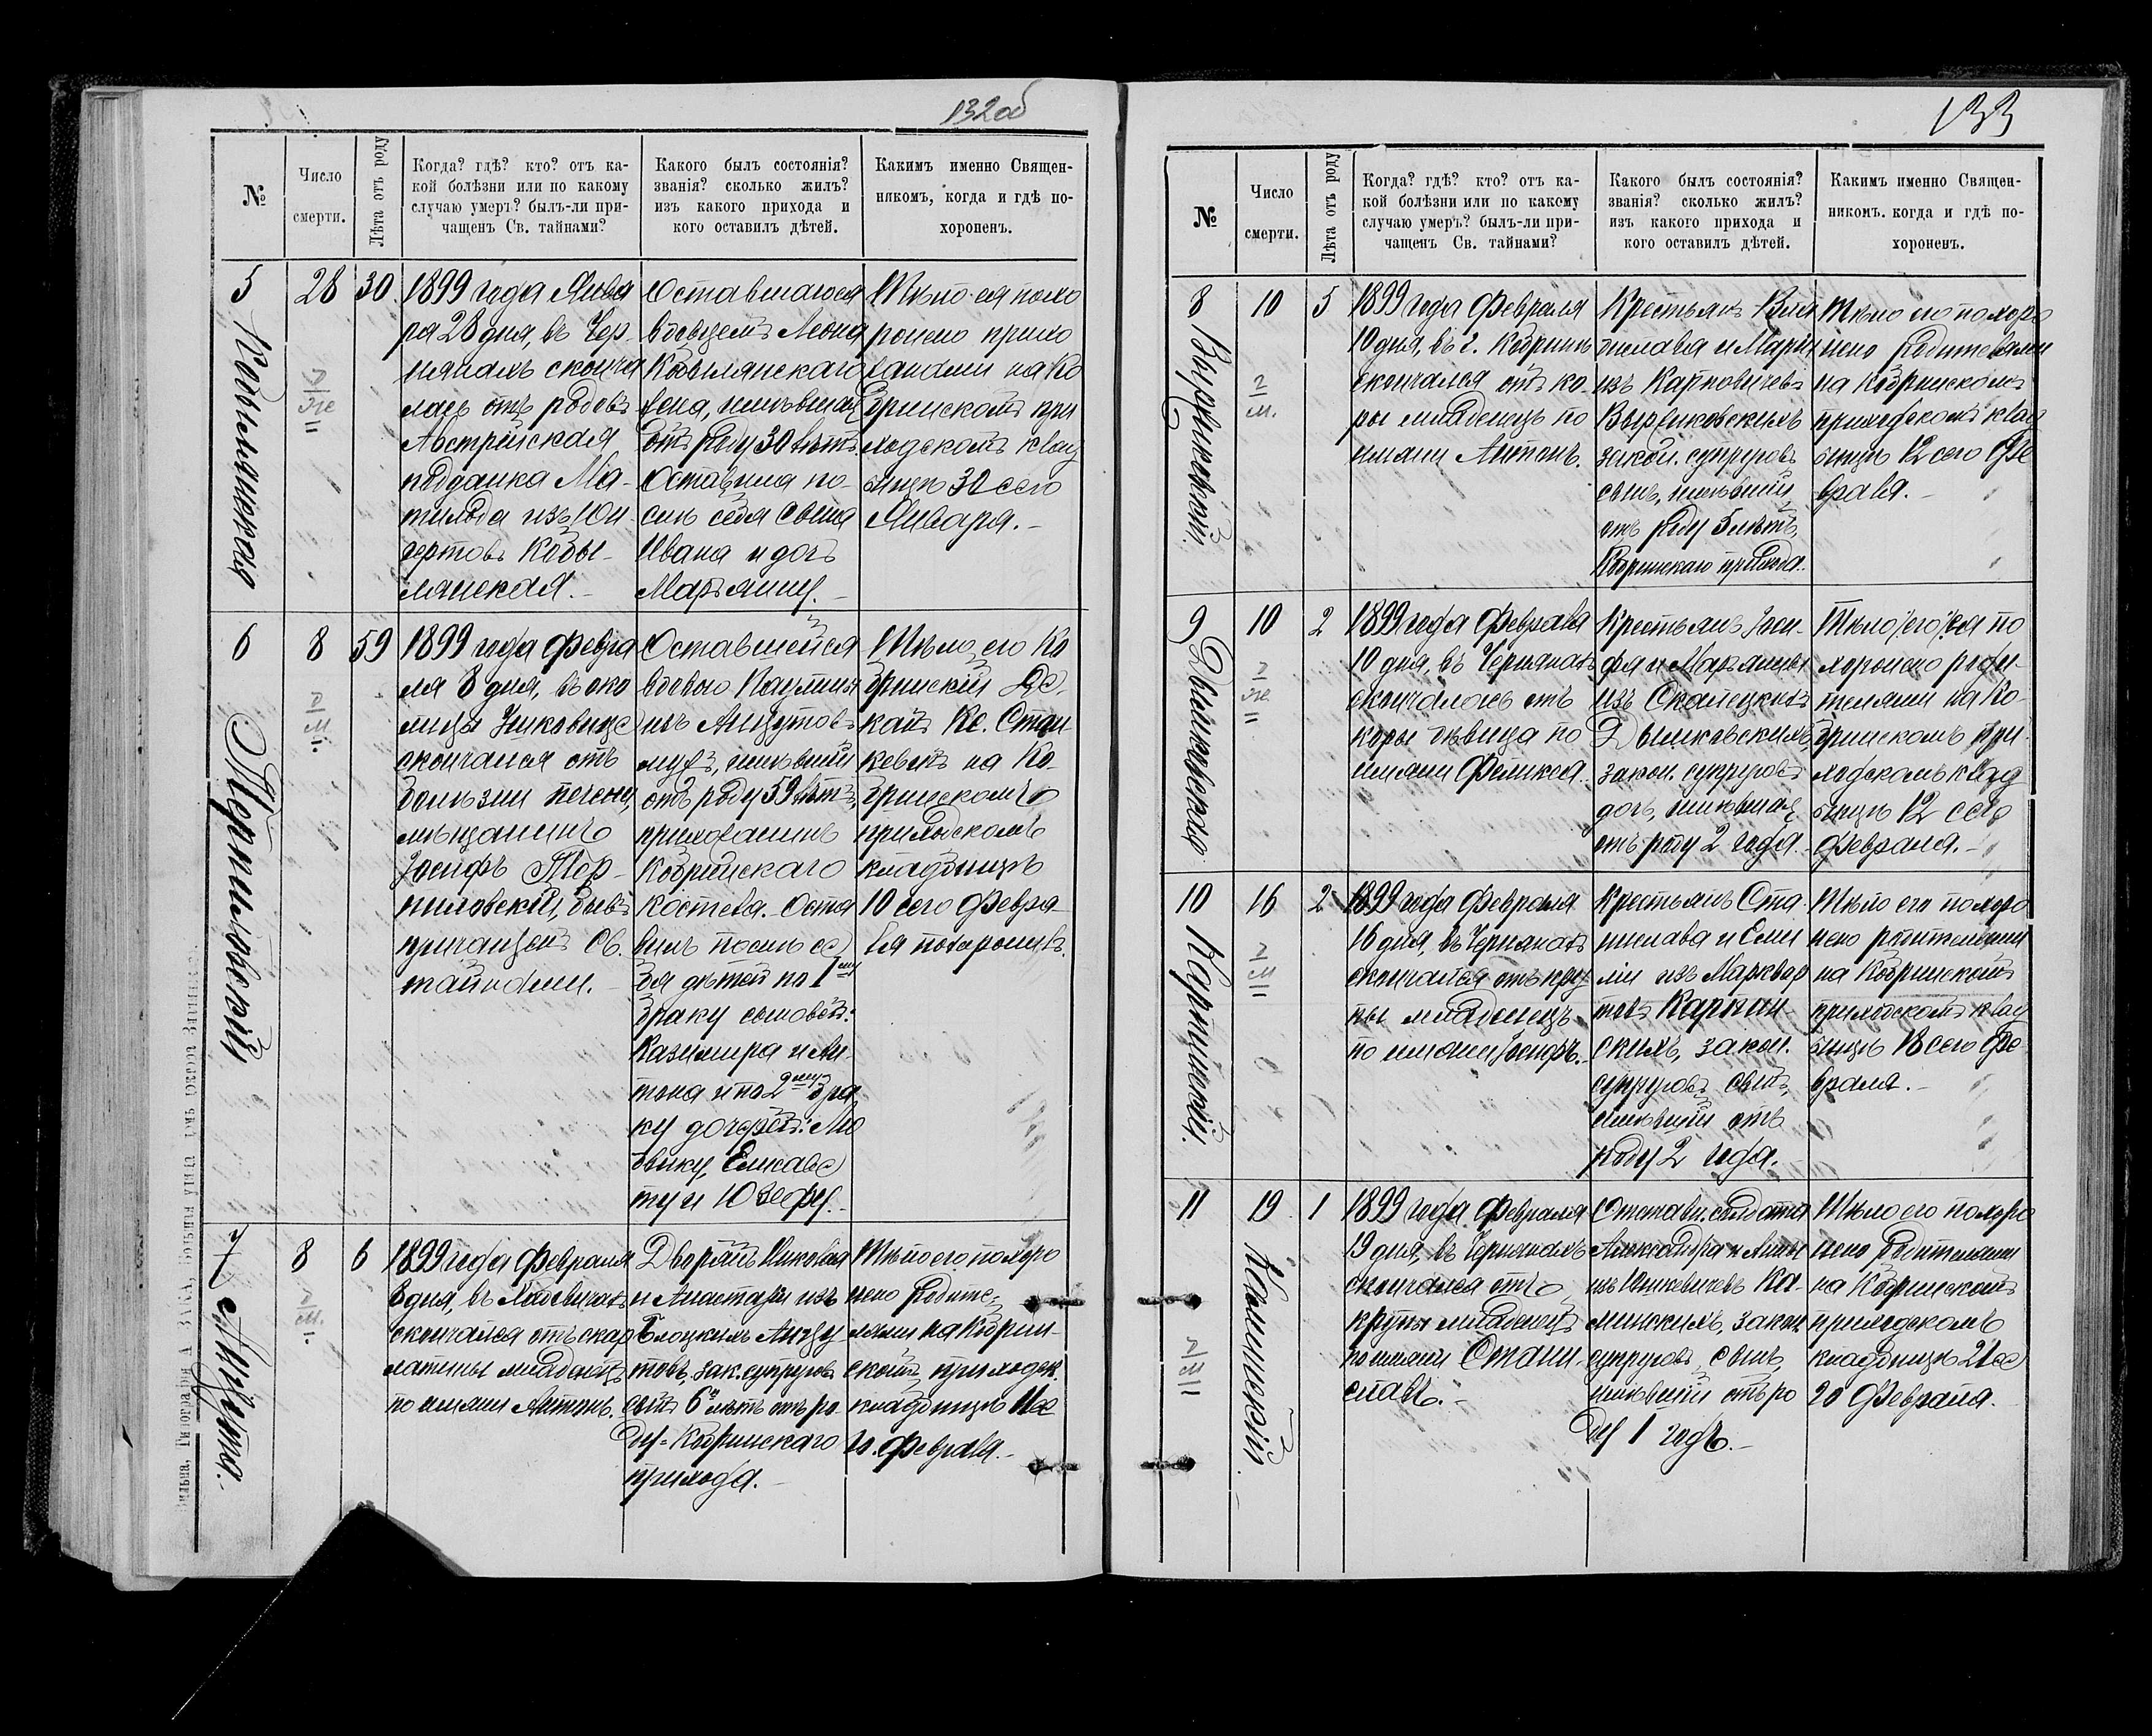 132об
№
Число
смерти.
Лѣта отъ роду
Когда? гдѣ? кто? отъ ка-
кой болѣзни или по какому
случаю умеръ? былъ-ли при-
чащенъ Св. тайнами?
Какого былъ состоянія?
званія? сколько жилъ?
изъ какого прихода и
кого оставилъ дѣтей.
Какимъ именно Священ-
никомъ, когда и гдѣ по-
хороненъ.
5
Кобылянская
28
30
1899 года Янва
ря 28 дня, въ Чер-
нянахъ сконча
лась отъ родовъ
Австрійская
подданка Ма-
тильда изъ
Кобы-
лянская.-
Оставшагося
вдовцемъ Леона
Кобылянскаго
жена, имѣвшая
отъ роду 30 лѣтъ.
Оставила по-
слѣ себя сына
Ивана и дочь
Марьянну.-
Тѣло ея похо
ронено прихо
жанами на Ко
бринскомъ при
ходскомъ клад
бищѣ 30 сего
Января.-
6
Терпиловскій
8
59
1899 года Февра
ля 8 дня, въ око
лицѣ
скончался отъ
болѣзни печени,
мѣщанинъ
Іосифъ Тер-
пиловскій, бывъ
причащенъ Св.
тайнами.-
Оставшейся
вдовою Паулины
изъ Анцутовъ
мужъ, имѣвшій
отъ роду 59 лѣтъ,
прихожанинъ
Кобринскаго
костела. Оста
вилъ послѣ се
бя дѣтей по 1му
браку сыновей:
Казимира и Ан-
тона и по 2му бра
ку дочерей: Лю
двику, Елизаве
ту и Юзефу.-
Тѣло его Ко
бринскій Де-
канъ Кс. Стан-
кевичъ на Ко-
бринскомъ
приходскомъ
кладбищѣ
10 сего Февра-
ля похоронилъ.
7
Анцута.
8
6
1899 года Февраля
8 дня, въ
скончался отъ скар
латины младенецъ
по имени Антонъ.
Дворянъ Николая
и Анастазіи изъ
Блоцкихъ Анцу
товъ, зак. супруговъ
сынъ 6 лѣтъ отъ ро-
ду- Кобринскаго
прихода.-
Тѣло его похоро
нено родите-
лями на Кобрин-
скомъ приходск.
кладбищѣ 11 се
го. Февраля.-
133
№
Число
смерти.
Лѣта отъ роду
Когда? гдѣ? кто? отъ ка-
кой болѣзни или по какому
случаю умеръ? былъ-ли при-
чащенъ Св. тайнами?
Какого былъ состоянія?
званія? сколько жилъ?
изъ какого прихода и
кого оставилъ дѣтей.
Какимъ именно Священ-
никомъ. когда и гдѣ по-
хороненъ.
8
10
5
1899 года Февраля
10 дня, въ г. Кобринѣ
скончался отъ ко-
ри младенецъ по
имени Антонъ.
Крестьянъ
и Маріи
изъ Карповичей
законн. супруговъ
сынъ, имѣвшій
отъ роду 5 лѣтъ,
Кобринскаго прихода.
Тѣло его похоро
нено родителями
на Кобринскомъ
приходскомъ клад
бищѣ 12 сего Фе
враля.-
9
Дымковская
10
2
1899 года Февраля
10 дня, въ Чернянахъ
скончалась отъ
кори дѣвица по
имени Феликса.
Крестьянъ Іоси-
фа и Марьянны
изъ Скалецкихъ
Дымковскихъ,
закон. супруговъ
дочь, имѣвшая
отъ роду 2 года.
Тѣло (его) ея по
хоронено роди-
телями на Ко-
бринскомъ при-
ходскомъ клад
бищѣ 12 сего
Февраля.-
10
Карпинскій.
16
2
1899 года Февраля
16 дня, въ Чернянахъ
скончался отъ кру
пы младенецъ
по имени Іосифъ.
Крестьянъ Ста
нислава и Еми
ліи изъ Марквар
товъ Карпин-
скихъ, закон.
супруговъ сынъ,
имѣвшій отъ
роду 2 года.
Тѣло его похоро
нено родителями
на Кобринскомъ
приходскомъ клад
бищѣ 18 сего Фе
враля.-
11
Каминскій.
19
1
1899 года Февраля
19 дня, въ Чернянахъ
скончался отъ
крупы младенецъ
по имени Стани-
славъ.-
Отставн. солдата
Александра и Анны
Ка-
минскихъ, закон.
супруговъ, сынъ,
имѣвшій отъ ро
ду 1 годъ.-
Тѣло его похоро
нено родителями
на Кобринскомъ
приходскомъ
кладбищѣ 21 се
го Февраля.